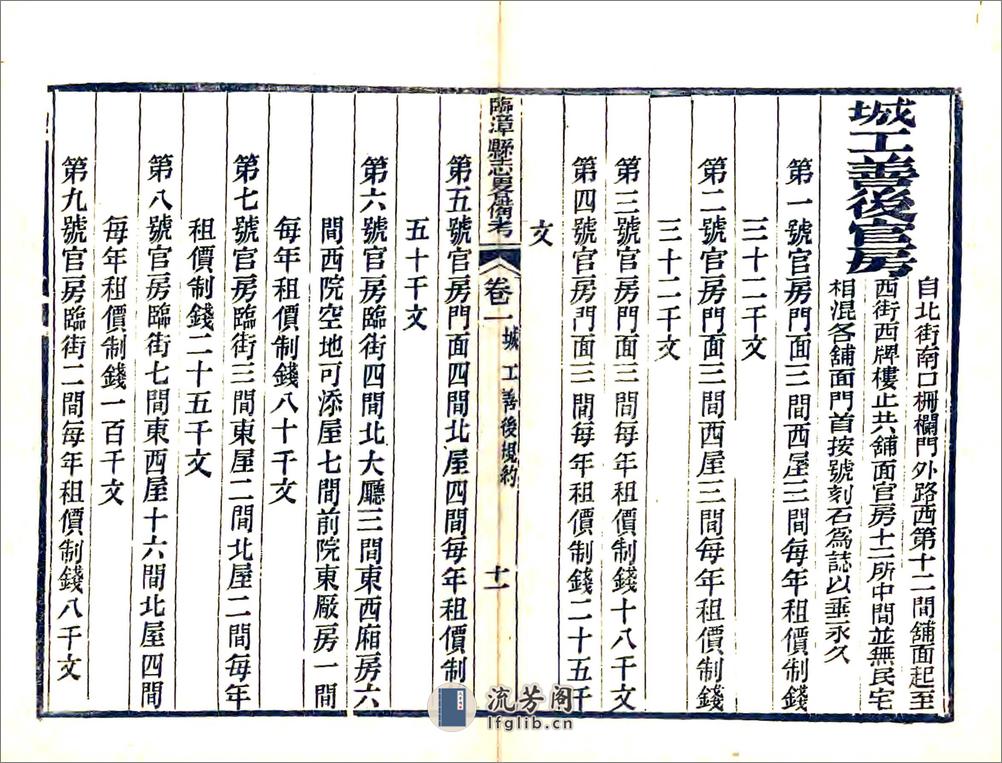 城工善後官房
自北街南口柵欄門外路西第十二間舖面起至
西街西牌樓止共舖面官房十二所中間並無民宅
相混各舖面門首按號刻石為誌以垂永久
第一號官房門面三間西屋三間每年租價制錢
三十二千文
第二號官房門面三間西屋三間每年租價制錢
三十二千文
第三號官房門面三間每年租價制錢十八千文
第四號官房門面三間每年租價制錢二十五千
文
臨漳縣志畧備考
卷一
城工善後規約
十一
第五號官房門面四間北屋四間每年租價制
五十千文
第六號官房臨街四間北大廳三間東西廂房六
間西院空地可添屋七間前院東厰房一間
每年租價制錢八十千文
第七號官房臨街三間東屋二間北屋二間每年
租價制錢二十五千文
第八號官房臨街七間東西屋十六間北屋四間
每年租價制錢一百千文
第九號官房臨街二間每年租價制錢八千文
流芳阁
lfglib.cn